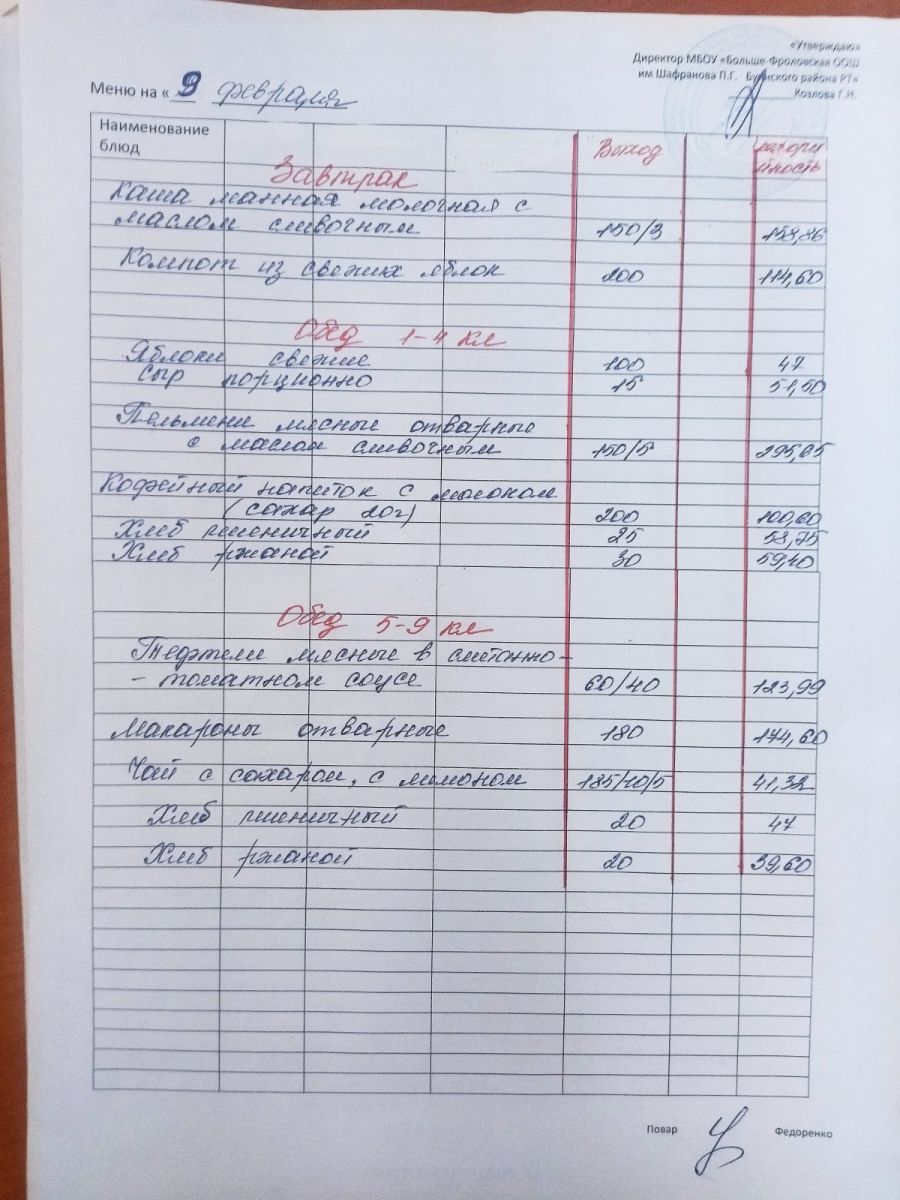 «Утверждаю»
Директор МБОУ «Больше-Фроловская ООШ
им Шафранова П.Г. Буинского района РТ»
Козлова Г.И.
Меню на « 9 февраля
Наименование блюд Выход калорийность
Завтрак
Каша манная молочная с
маслом сливочным 150/3 158,86
Компот из свежих яблок 200 114,60
Обед 1-4 кл
Яблоки свежие 100 47
Сыр порционно 15 51,50
Пельмени мясные отварные
с маслом сливочным 150/5 295,65
Кофейный напиток с молоком
(сахар 20г) 200 100,60
Хлеб пшеничный 25 58,75
Хлеб ржаной 30 59,40
Обед 5-9 кл
Тефтели мясные в сметанно-
- томатном соусе 60/40 123,99
Макароны отварные 180 174,60
Чай с сахаром, с лимоном 185/10/5 41,32
Хлеб пшеничный 20 47
Хлеб ржаной 20 39,60
Повар Федоренко